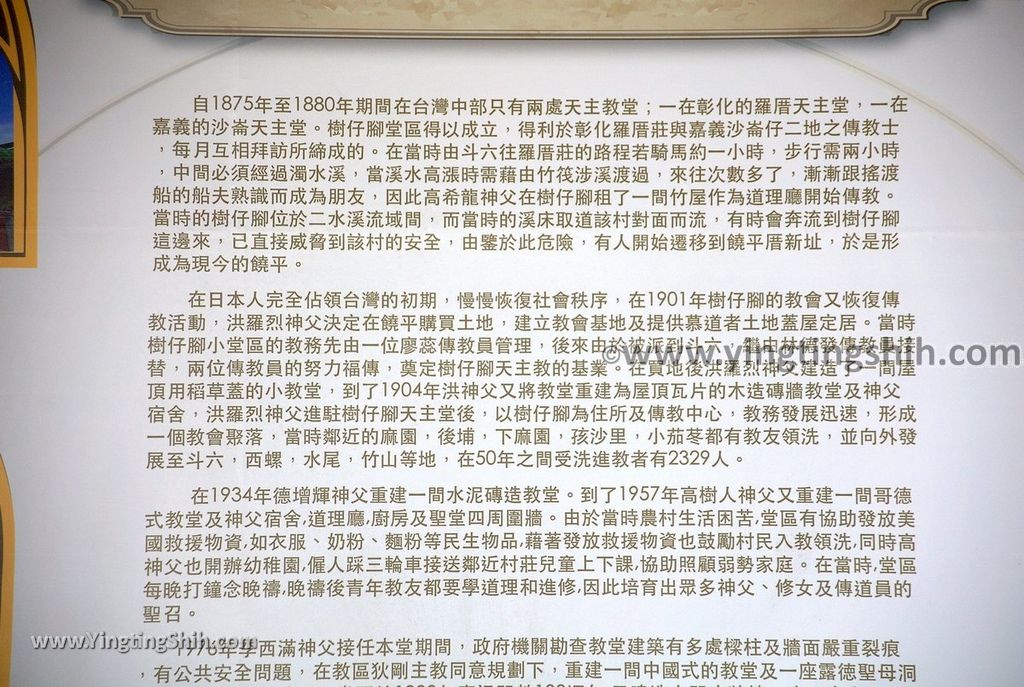 自1875年至1880年期間在台灣中部只有兩處天主教堂；一在彰化的羅厝天主堂，一在
嘉義的沙崙天主堂。樹仔腳堂區得以成立，得利於彰化羅厝莊與嘉義沙崙仔二地之傳教士
，每月互相拜訪所締成的。在當時由斗六往羅厝莊的路程若騎馬約一小時，步行需兩小時
，中間必須經過濁水溪，當溪水高漲時需藉由竹筏涉溪渡過，來往次數多了，漸漸跟搖渡
船的船夫熟識而成為朋友，因此高希龍神父在樹仔腳租了一間竹屋作為道理廳開始傳教。
當時的樹仔腳位於二水溪流域間，而當時的溪床取道該村對面而流，有時會奔流到樹仔腳
這邊來，已直接威脅到該村的安全，由鑒於此危險，有人開始遷移到饒平厝新址，於是形
成為現今的饒平。
在日本人完全佔領台灣的初期，慢慢恢復社會秩序，在1901年樹仔腳的教會又恢復傳
教活動，洪羅烈神父決定在饒平購買土地，建立教會基地及提供慕道者土地蓋屋定居。當時
樹仔腳小堂區的教務先由一位廖蕊傳教員管理，後來由於被派到斗六，繼由林 發傳教員接
替，兩位傳教員的努力福傳，奠定樹仔腳天主教的基業。在買地後洪羅烈神父建造了一間屋
頂用稻草蓋的小教堂，到了1904年洪神父又將教堂重建為屋頂瓦片的木造磚牆教堂及神父
宿舍，洪羅烈神父進駐樹仔腳天主堂後，以樹仔腳為住所及傳教中心，教務發展迅速，形成
一個教會聚落，當時鄰近的麻園，後埔，下麻園，孩沙里，小茄苳都有教友領洗，並向外發
展至斗六，西螺，水尾，竹山等地，在50年之間受洗進教者有2329人。
©www.yingtingshih.com
在1934年德增輝神父重建一間水泥磚造教堂。到了1957年高樹人神父又重建一間哥德
式教堂及神父宿舍,道理廳,廚房及聖堂四周圍牆。由於當時農村生活困苦,堂區有協助發放美
國救援物資,如衣服、奶粉、麵粉等民生物品,藉著發放救援物資也鼓勵村民入教領洗,同時高
神父也開辦幼稚園,僱人踩三輪車接送鄰近村莊兒童上下課,協助照顧弱勢家庭。在當時,堂區
每晚打鐘念晚禱,晚禱後青年教友都要學道理和進修,因此培育出眾多神父、修女及傳道員的
聖召。
1976年李西滿神父接任本堂期間，政府機關勘查教堂建築有多處樑柱及牆面嚴重裂痕
，有公共安全問題，在教區狄剛主教同意規劃下，重建一間中國式的教堂及一座露德聖母洞
www.YingtingShih.com
www.YingtingShih.com